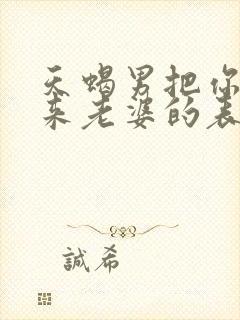 天蝎男把你
来老婆的表
誠希